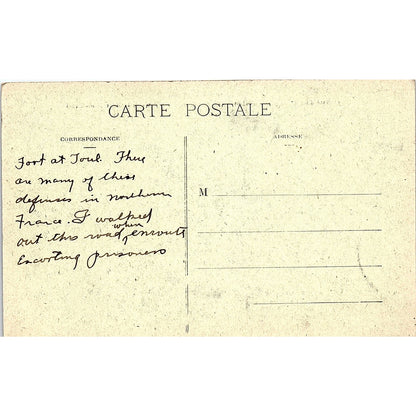 CARTE POSTALE
CORRESPONDANCE
ADRESSE
Fort at Toul. There
are many of these
defenses in northern
France. I walked
out this road, when enroute
Escorting prisoners
M